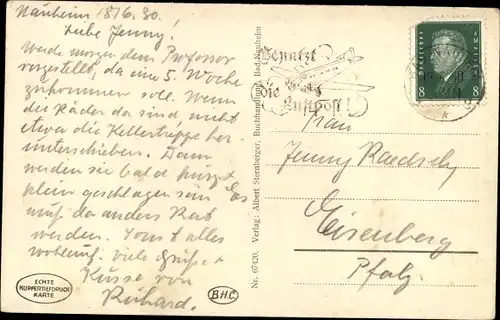 Nauheim 18/6.30.
Liebe Jenny!
Werde morgen dem Professor
vorgestellt, da am 5. Woche
zukommen soll. Wenn
die Räder da sind, nicht
etwa die Kellertreppe her-
unterschieben. Dann
werden sie bald
klein geschlagen sein Es
muß da anders Rat
werden. Sonst alles
wohlauf. Viele Grüße +
Küsse von
Richard.
ECHTE
KUPFERTIEFDRUCK
KARTE
BHC
Nr. 67420. Verlag: Albert Sternberger, Buchhandlung, Bad-Nauheim
Benutzt
die
Luftpost!
DEUTSCHES REICH
8 8
k
Frau
Jenny Raedschy
Eisenberg
Pfalz.